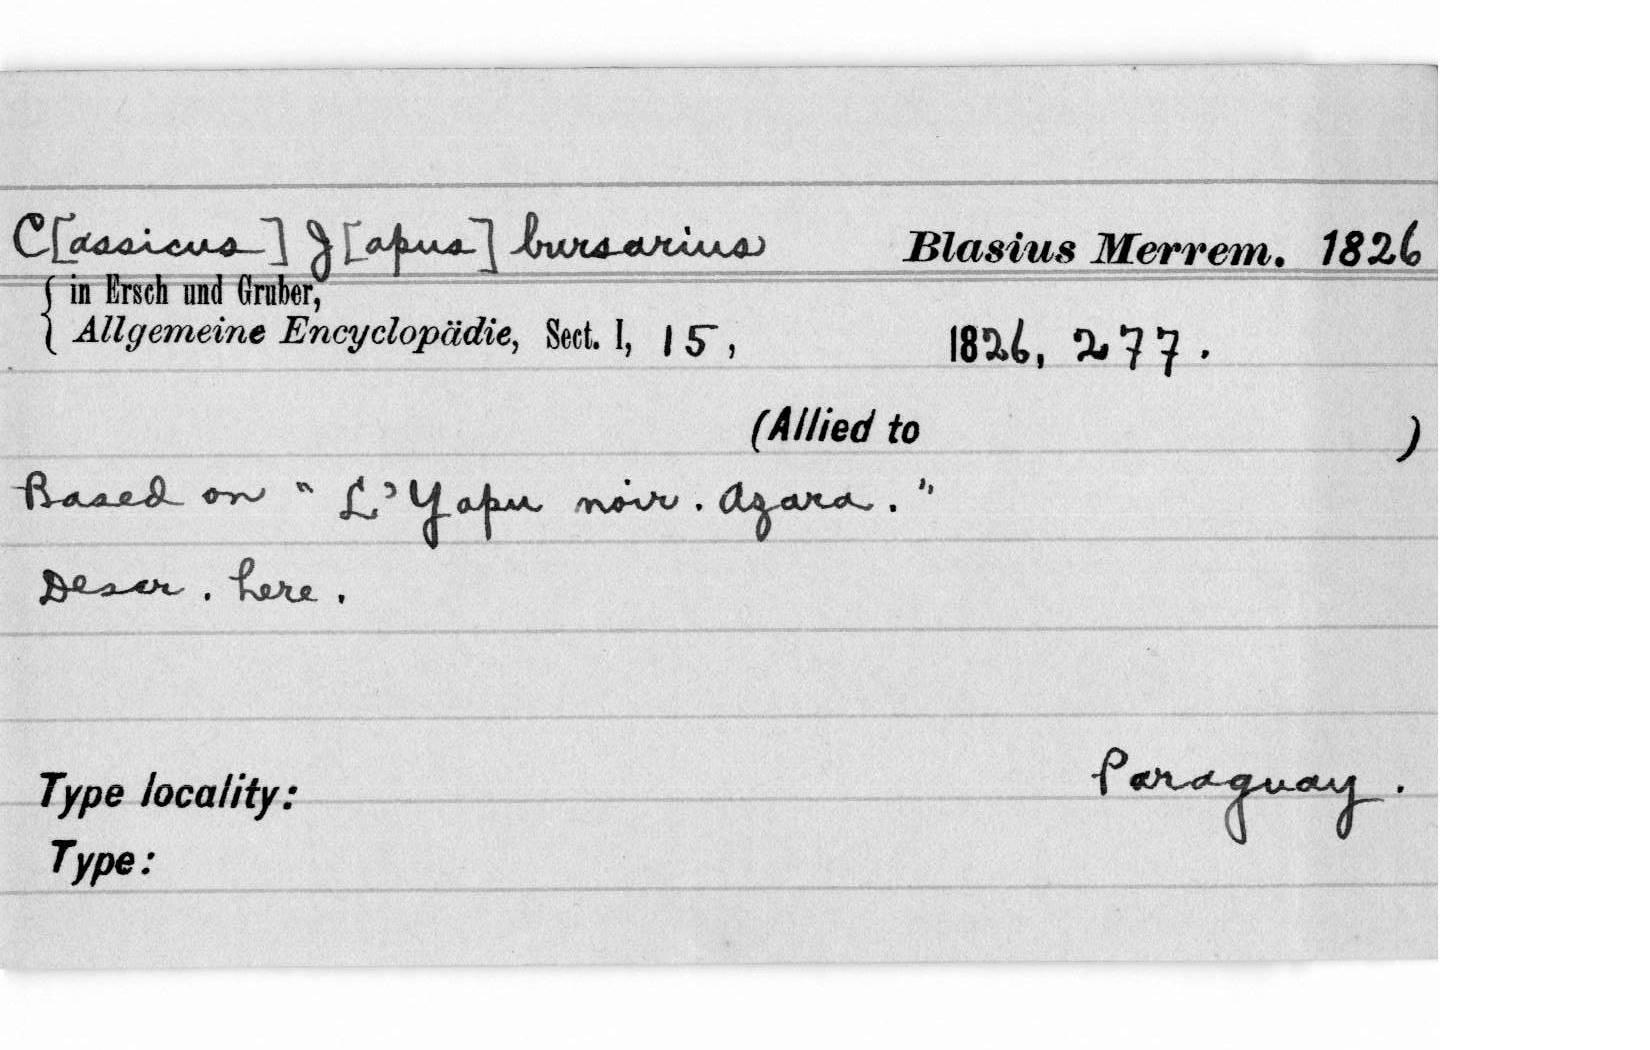 C[assicus] J[apus] bursarius Blasius Merrem. 1826
{ in Ersch und Gruber,
Allgemeine Encyclopädie, Sect. I, 15, 1826, 277.
(Allied to )
Based on "L'Yapu noir. Azara."
Descr. here.
Type locality: Paraguay.
Type: